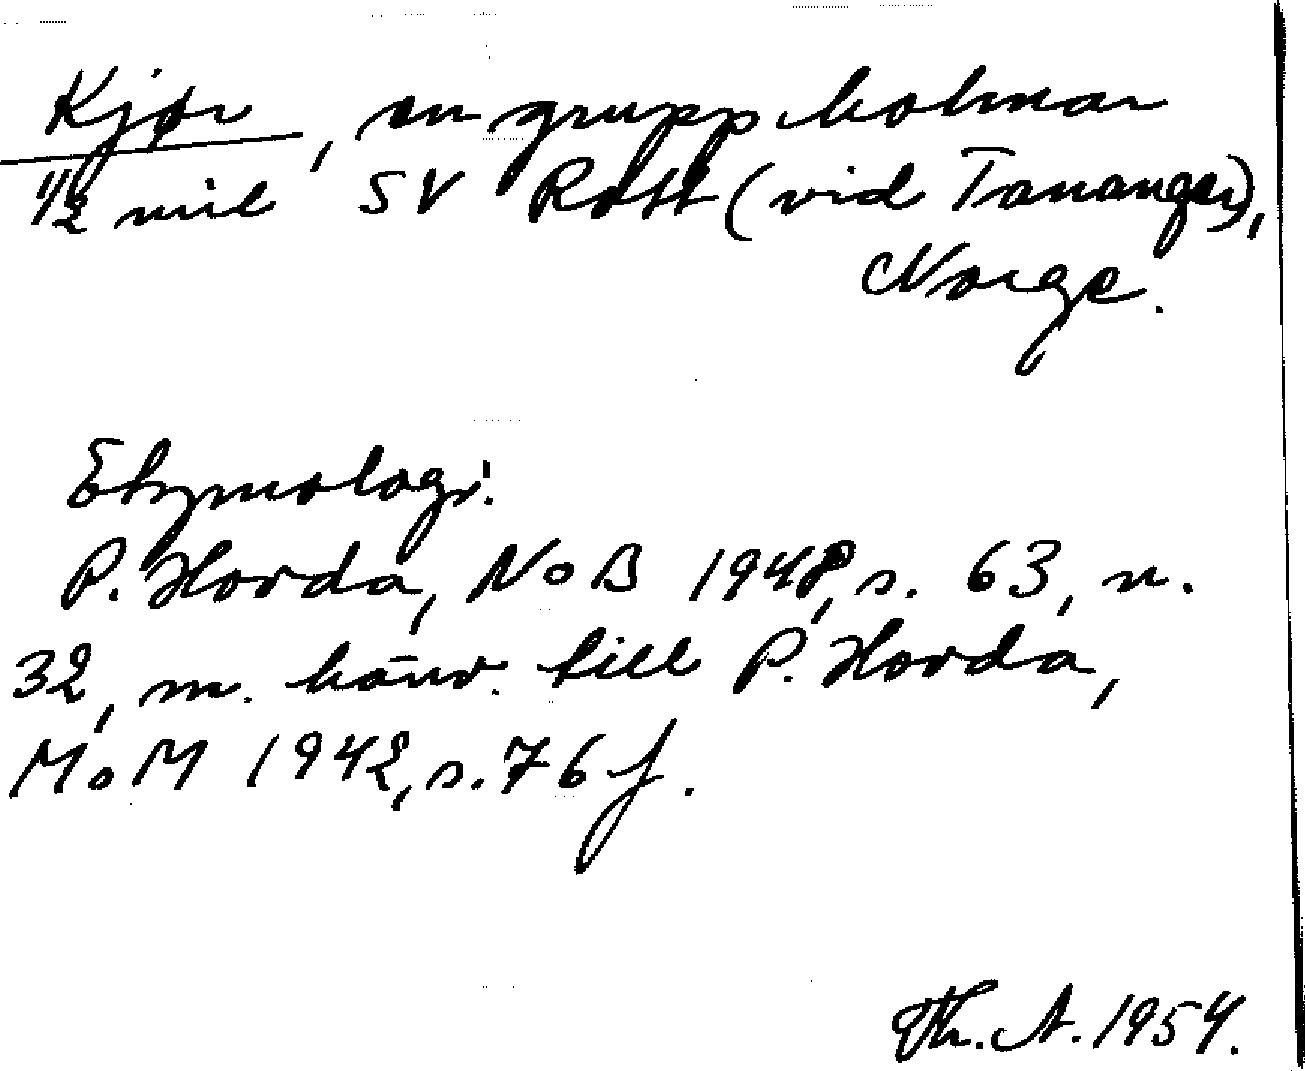 Kjør, en grupp holmar
1/2 mil SV Rott (vid Tananger),
Norge.
Etymologi:
P. Hovda, NoB 1948, s. 63, n.
32, m. hänv. till P. Hovda,
MoM 1942, s. 76 f.
Th. A. 1954.